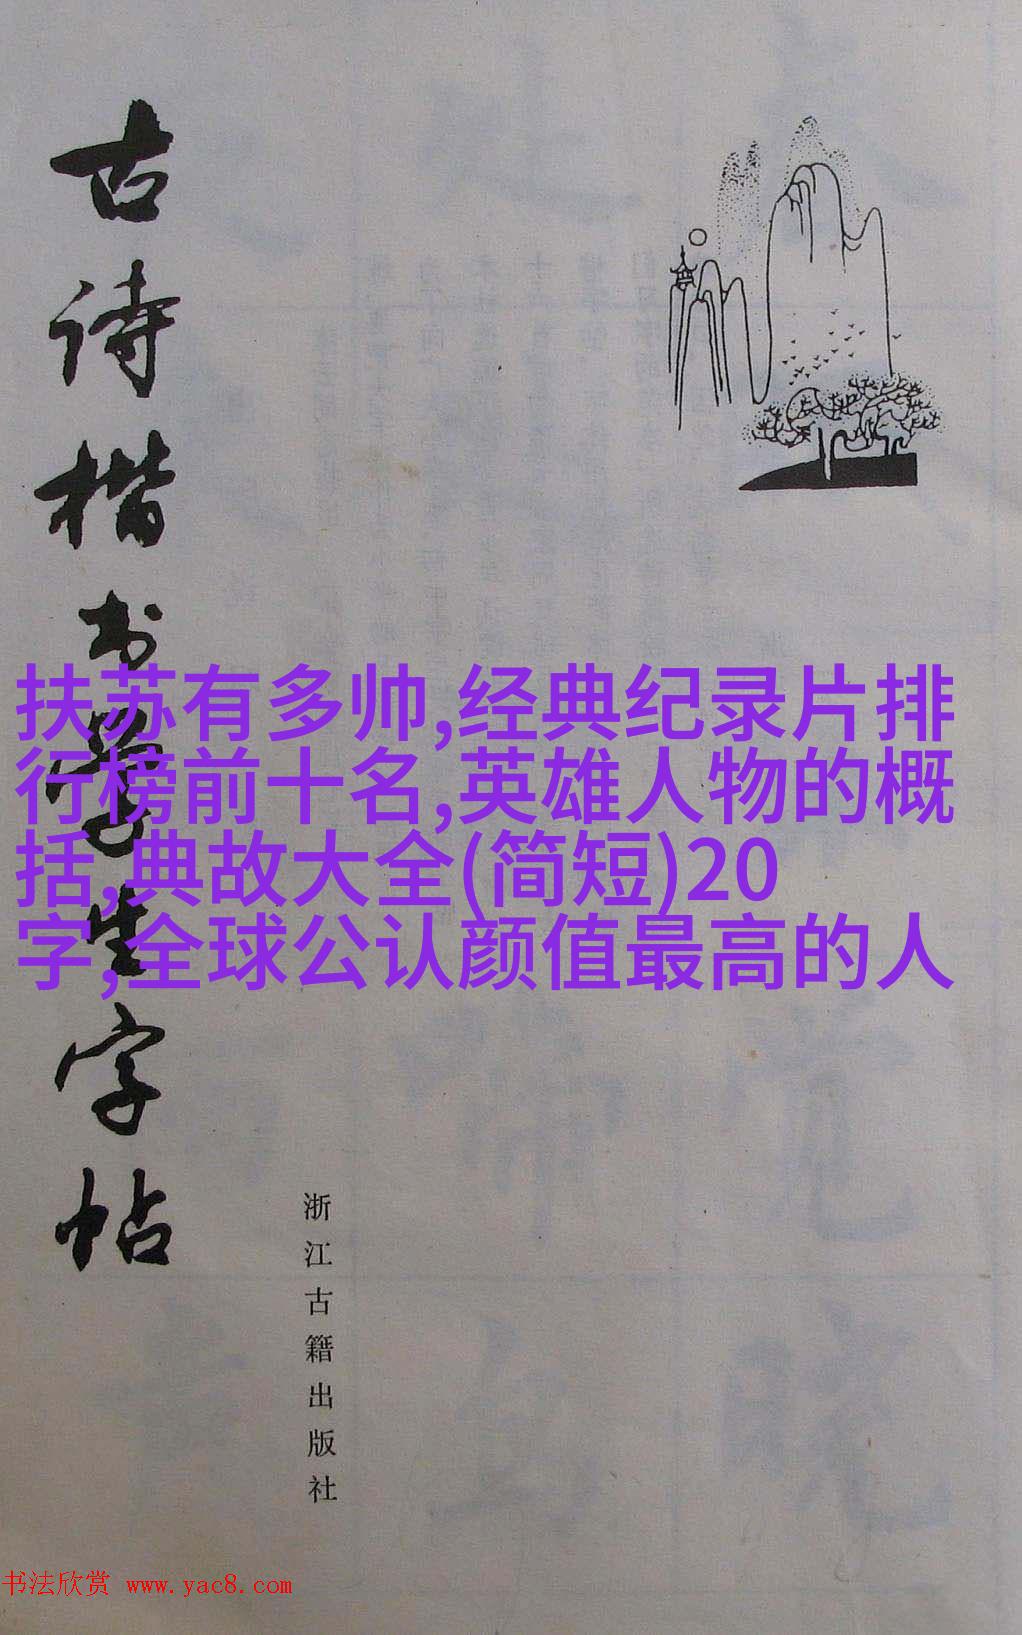 古诗楷书学生字帖
扶苏有多帅,经典纪录片排
行榜前十名,英雄人物的概
括,典故大全(简短)20
字,全球公认颜值最高的人
浙江古籍出版社
书法欣赏 www.yac8.com